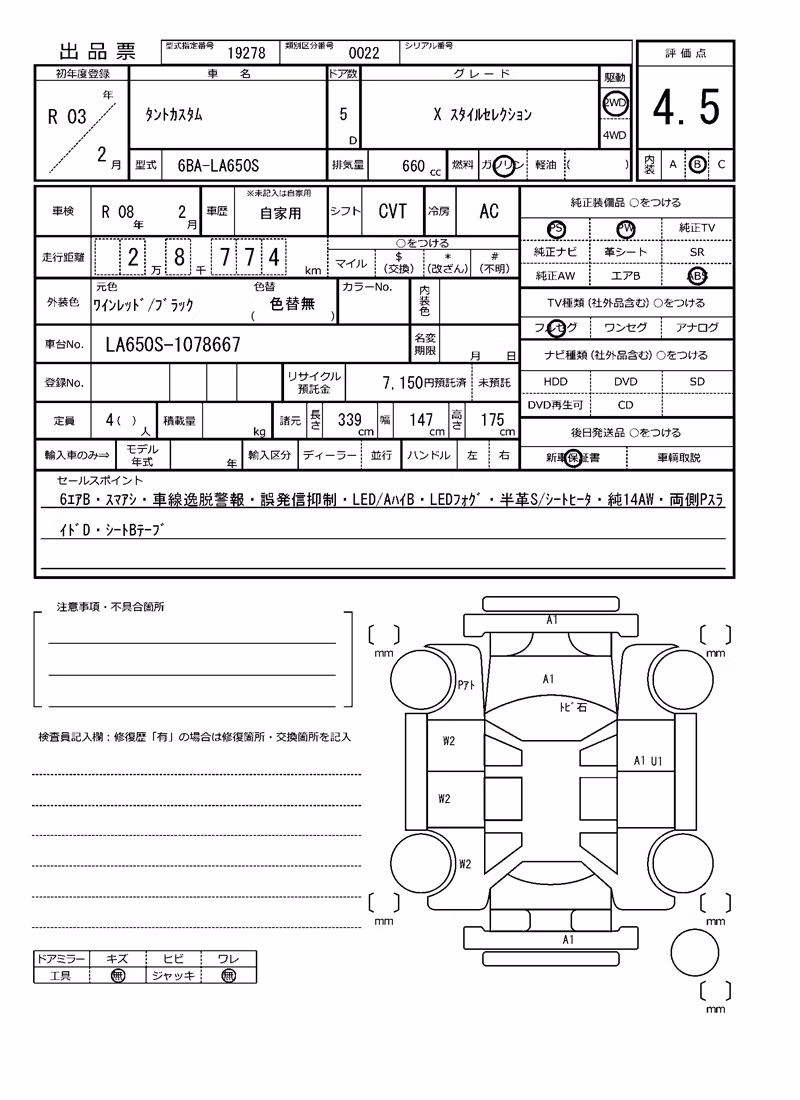 出品票 型式指定番号 19278 類別区分番号 0022 シリアル番号
評価点
4.5
内装 A B C
初年度登録 車名 ドア数 グレード 駆動
R 03 年 2 月 タントカスタム 5 D X スタイルセレクション 2WD 4WD
型式 6BA-LA650S 排気量 660 cc 燃料 ガソリン 軽油 ( )
車検 R 08 年 2 月 車歴 ※未記入は自家用 自家用 シフト CVT 冷房 AC
走行距離 2 万 8 千 7 7 4 km ○をつける マイル $ (交換) * (改ざん) # (不明)
外装色 元色 ワインレッド/ブラック 色替 ( 色替無 ) カラーNo. 内装色
車台No. LA650S-1078667 名変期限 月 日
登録No. リサイクル預託金 7,150円預託済 未預託
定員 4 ( ) 人 積載量 kg 諸元 長さ 339 cm 幅 147 cm 高さ 175 cm
輸入車のみ⇒ モデル年式 年 輸入区分 ディーラー 並行 ハンドル 左 右
純正装備品 ○をつける
PS PW 純正TV
純正ナビ 革シート SR
純正AW エアB ABS
TV種類(社外品含む)○をつける
フルセグ ワンセグ アナログ
ナビ種類(社外品含む)○をつける
HDD DVD SD
DVD再生可 CD
後日発送品 ○をつける
新車保証書 車輌取説
セールスポイント
6エアB・スマアシ・車線逸脱警報・誤発信抑制・LED/AハイB・LEDフォグ・半革S/シートヒータ・純14AW・両側Pスラ
イドD・シートBテープ
注意事項・不具合箇所
検査員記入欄:修復歴「有」の場合は修復箇所・交換箇所を記入
ドアミラー キズ ヒビ ワレ
工具 無 ジャッキ 無
A1
mm mm
Pアト A1
トビ石
W2
A1 U1
W2
W2
mm mm
A1
mm